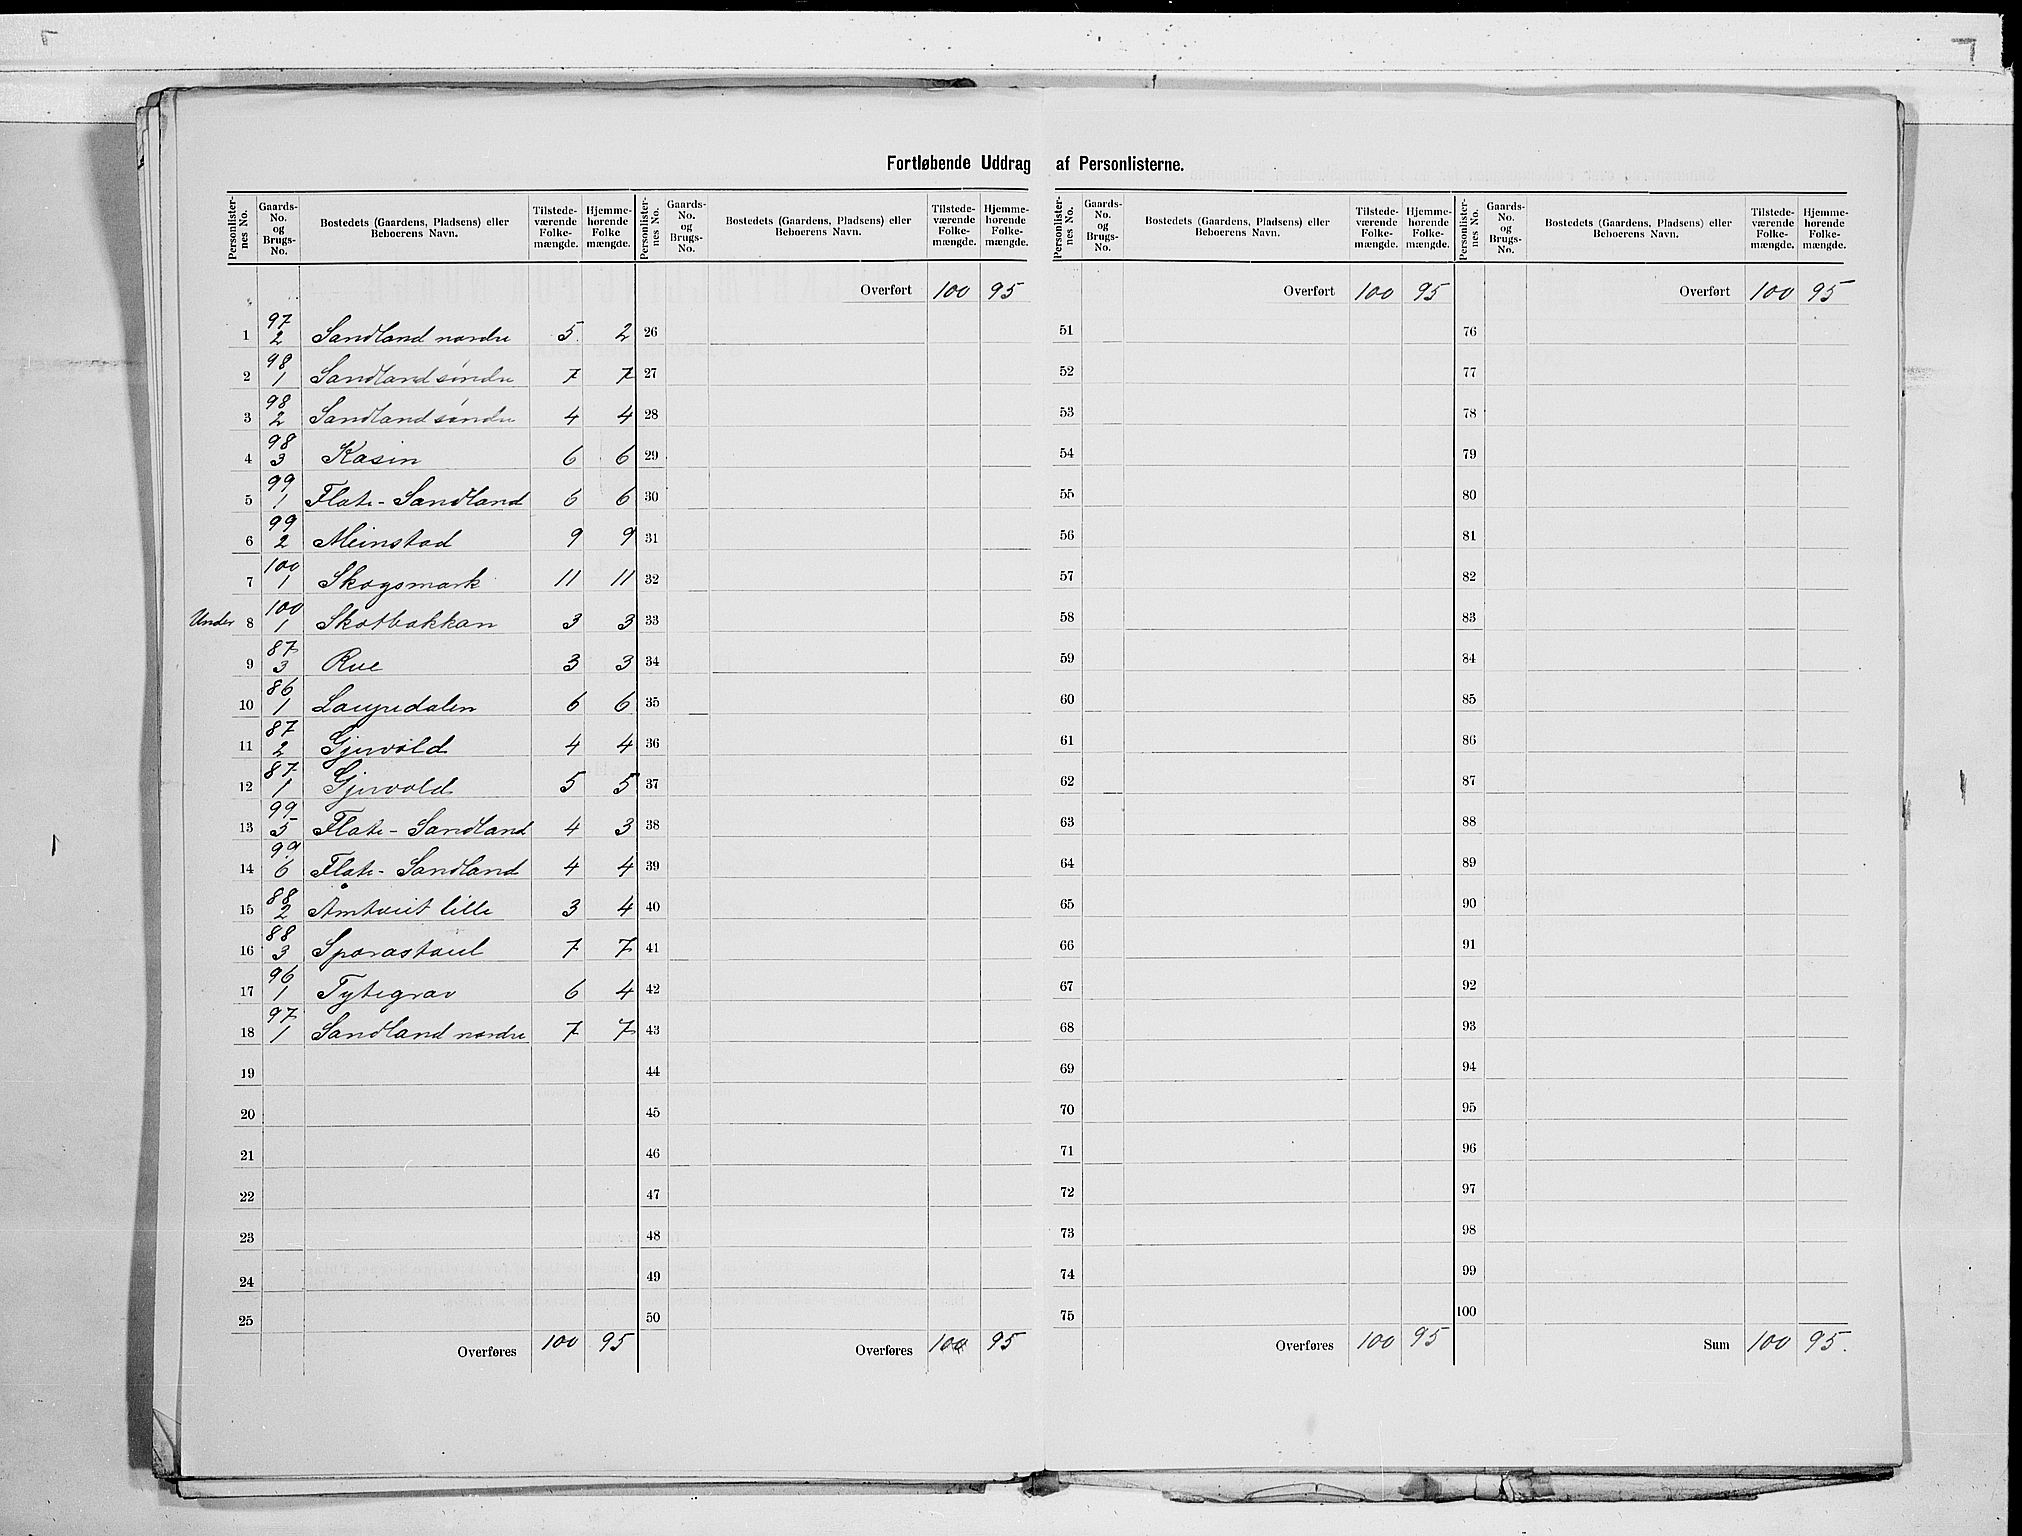 Fortløbende Uddrag af Personlisterne.
Personlisternes No. | Gaards-No. og Brugs-No. | Bostedets (Gaardens, Pladsens) eller Beboerens Navn. | Tilstedeværende Folkemængde. | Hjemmehørende Folkemængde.
1 97/2 Sandland nordre 5 2
2 98/1 Sandland søndre 7 7
3 98/2 Sandland søndre 4 4
4 98/3 Kasin 6 6
5 99/1 Flate-Sandland 6 6
6 99/2 Meinstad 9 9
7 100/1 Skogsmark 11 11
Under 8 100/1 Skotbakkan 3 3
9 87/3 Rue 3 3
10 86/1 6 6
11 87/2 Gjervold 4 4
12 87/1 Gjervold 5 5
13 99/5 Flate-Sandland 4 3
14 99/6 Flate-Sandland 4 4
15 88/2 Åmtveit lille 3 4
16 88/3 Sporastøul 7 7
17 96/1 Tytegrav 6 4
18 97/1 Sandland nordre 7 7
19
20
21
22
23
24
25
Overføres 100 95
Personlisternes No. | Gaards-No. og Brugs-No. | Bostedets (Gaardens, Pladsens) eller Beboerens Navn. | Tilstedeværende Folkemængde. | Hjemmehørende Folkemængde.
Overført 100 95
26
27
28
29
30
31
32
33
34
35
36
37
38
39
40
41
42
43
44
45
46
47
48
49
50
Overføres 100 95
Personlisternes No. | Gaards-No. og Brugs-No. | Bostedets (Gaardens, Pladsens) eller Beboerens Navn. | Tilstedeværende Folkemængde. | Hjemmehørende Folkemængde.
Overført 100 95
51
52
53
54
55
56
57
58
59
60
61
62
63
64
65
66
67
68
69
70
71
72
73
74
75
Overføres 100 95
Personlisternes No. | Gaards-No. og Brugs-No. | Bostedets (Gaardens, Pladsens) eller Beboerens Navn. | Tilstedeværende Folkemængde. | Hjemmehørende Folkemængde.
Overført 100 95
76
77
78
79
80
81
82
83
84
85
86
87
88
89
90
91
92
93
94
95
96
97
98
99
100
Sum 100 95.